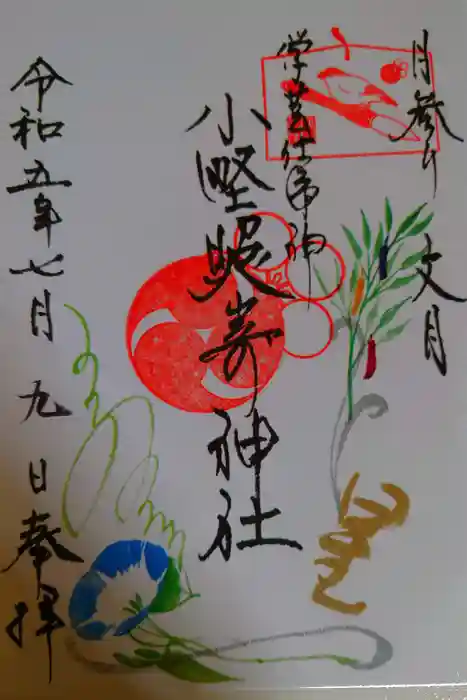 月参り 文月
学芸仕事神
小野照崎神社
令和五年七月九日奉拝